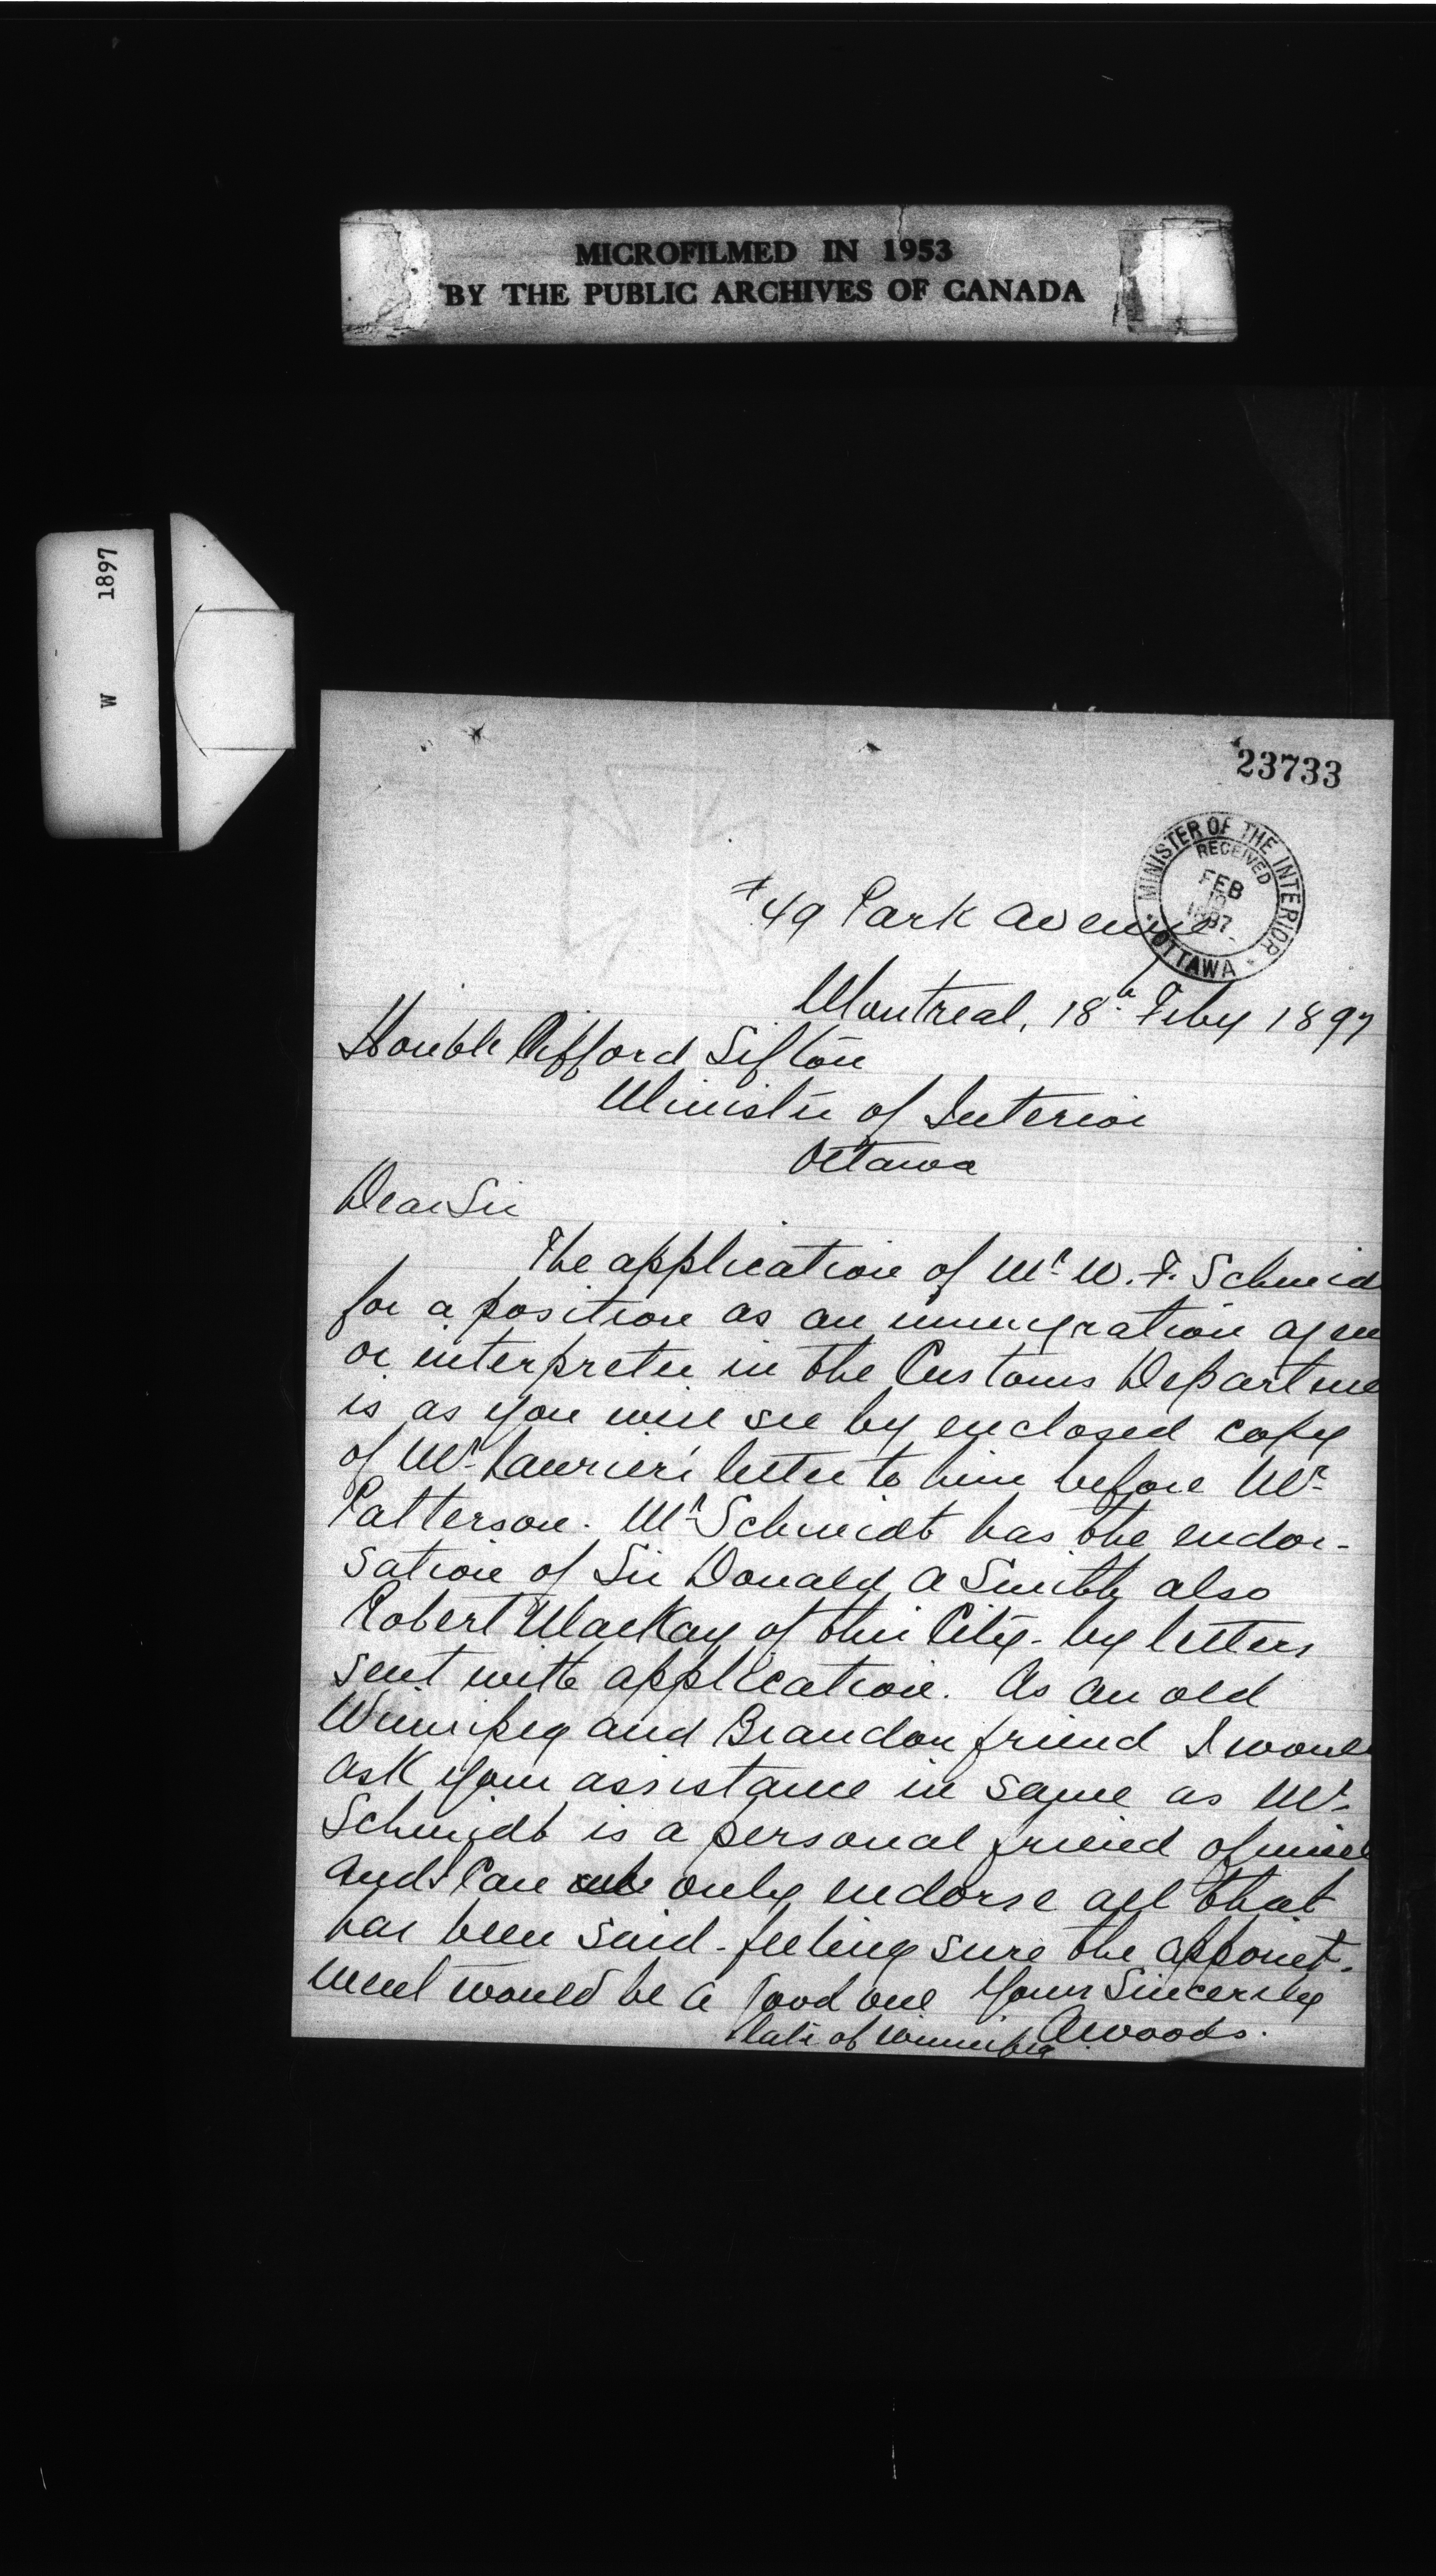 MICROFILMED IN 1953
BY THE PUBLIC ARCHIVES OF CANADA
W 1897
23733
MINISTER OF THE INTERIOR
RECEIVED
FEB
1897
OTTAWA
#49 Park Avenue
Montreal, 18th Feby 1897
Honble Clifford Sifton
Minister of Interior
Ottawa
Dear Sir
The application of Mr W. F. Schmid
for a position as an immigration agen
or interpreter in the Customs Departme
is as you will see by enclosed copy
of Mr Laurier's letter to him before Mr
Patterson. Mr Schmidt has the endor-
sation of Sir Donald A Smith also
Robert MacKay of this City - by letters
sent with application. As an old
Winnipeg and Brandon friend I would
ask your assistance in same as Mr.
Schmidt is a personal friend of mine
and I can only endorse all that
has been said - feeling sure the appoint-
ment would be a good one Yours Sincerely
late of Winnipeg A Woods.